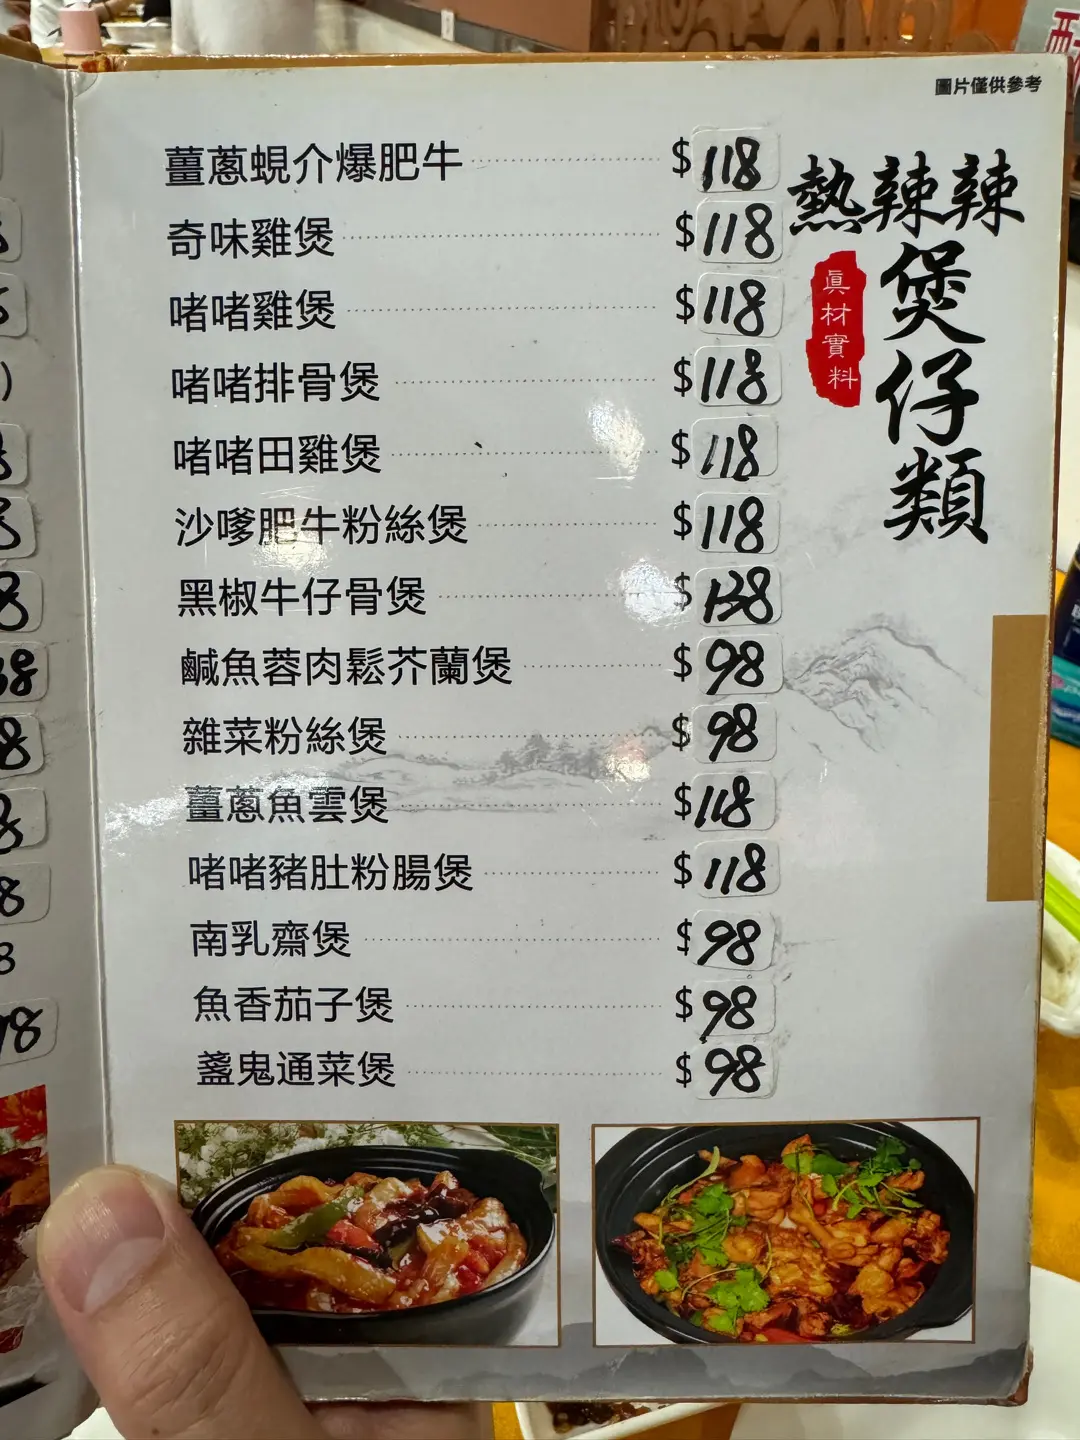 圖片僅供參考
熱辣辣
煲仔類
真材實料
薑蔥蜆介爆肥牛 $118
奇味雞煲 $118
啫啫雞煲 $118
啫啫排骨煲 $118
啫啫田雞煲 $118
沙嗲肥牛粉絲煲 $118
黑椒牛仔骨煲 $138
鹹魚蓉肉鬆芥蘭煲 $98
雜菜粉絲煲 $98
薑蔥魚雲煲 $118
啫啫豬肚粉腸煲 $118
南乳齋煲 $98
魚香茄子煲 $98
盞鬼通菜煲 $98